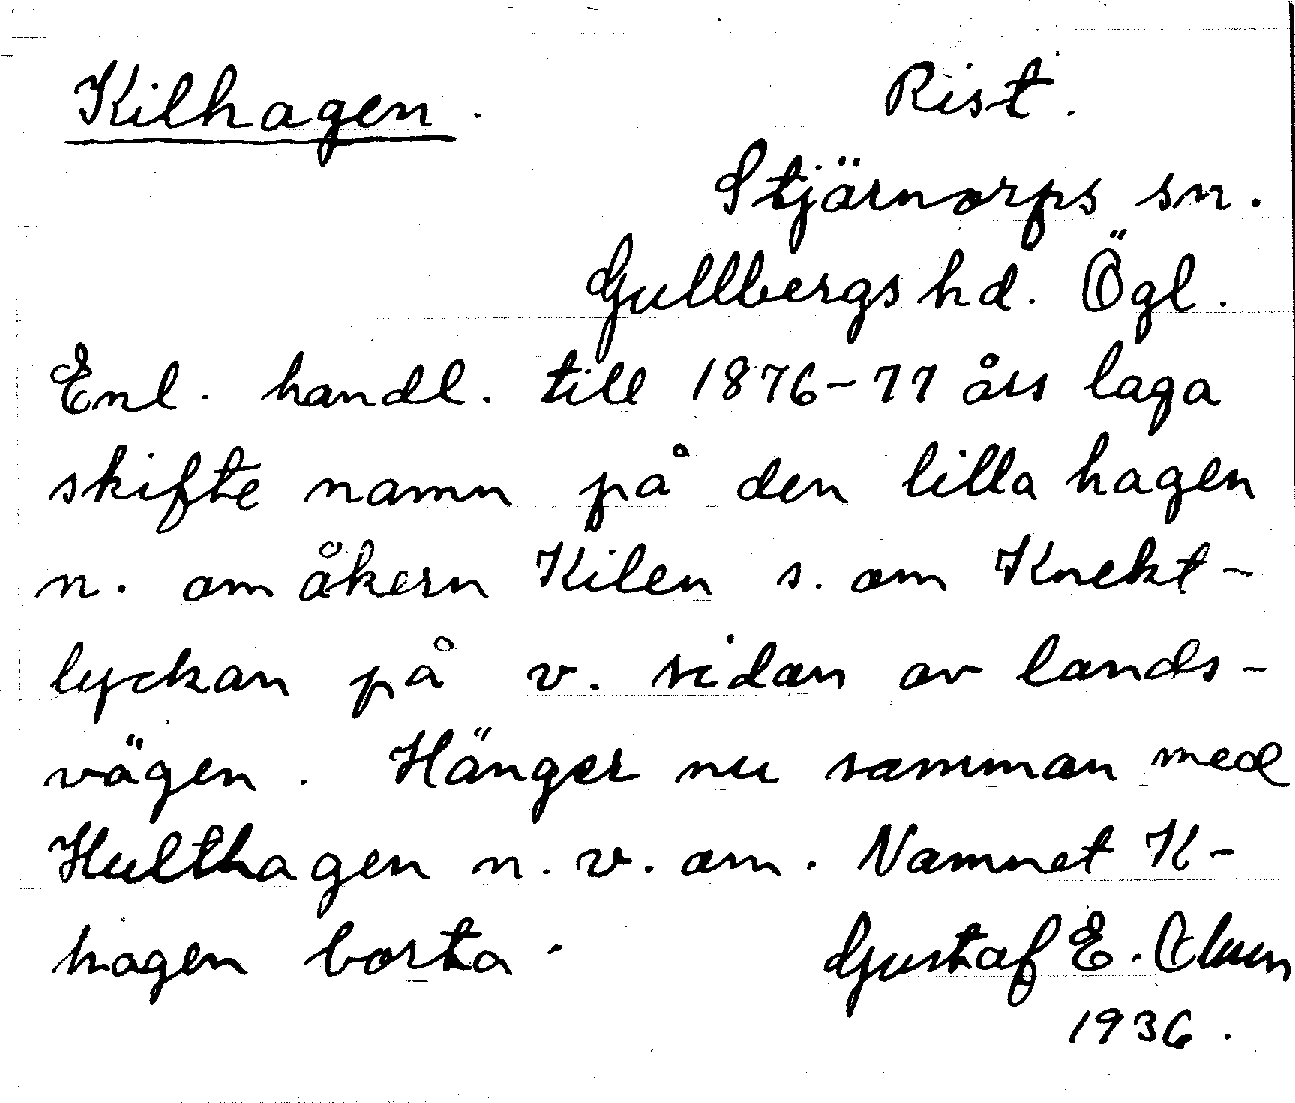 Kilhagen. Rist.
Stjärnorps sn.
Gullbergs hd. Ögl.
Enl. handl. till 1876-77 års laga
skifte namn på den lilla hagen
n. om åkern Kilen s. om Knekt-
lyckan på v. sidan av lands-
vägen. Hänger nu samman med
Hulthagen n. v. om. Namnet K-
hagen borta. Gustaf E. Olsen
1936.